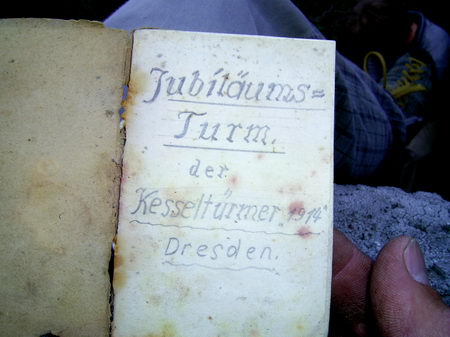 Jubiläums=
Turm.
der
Kesseltürmer 1914
Dresden.